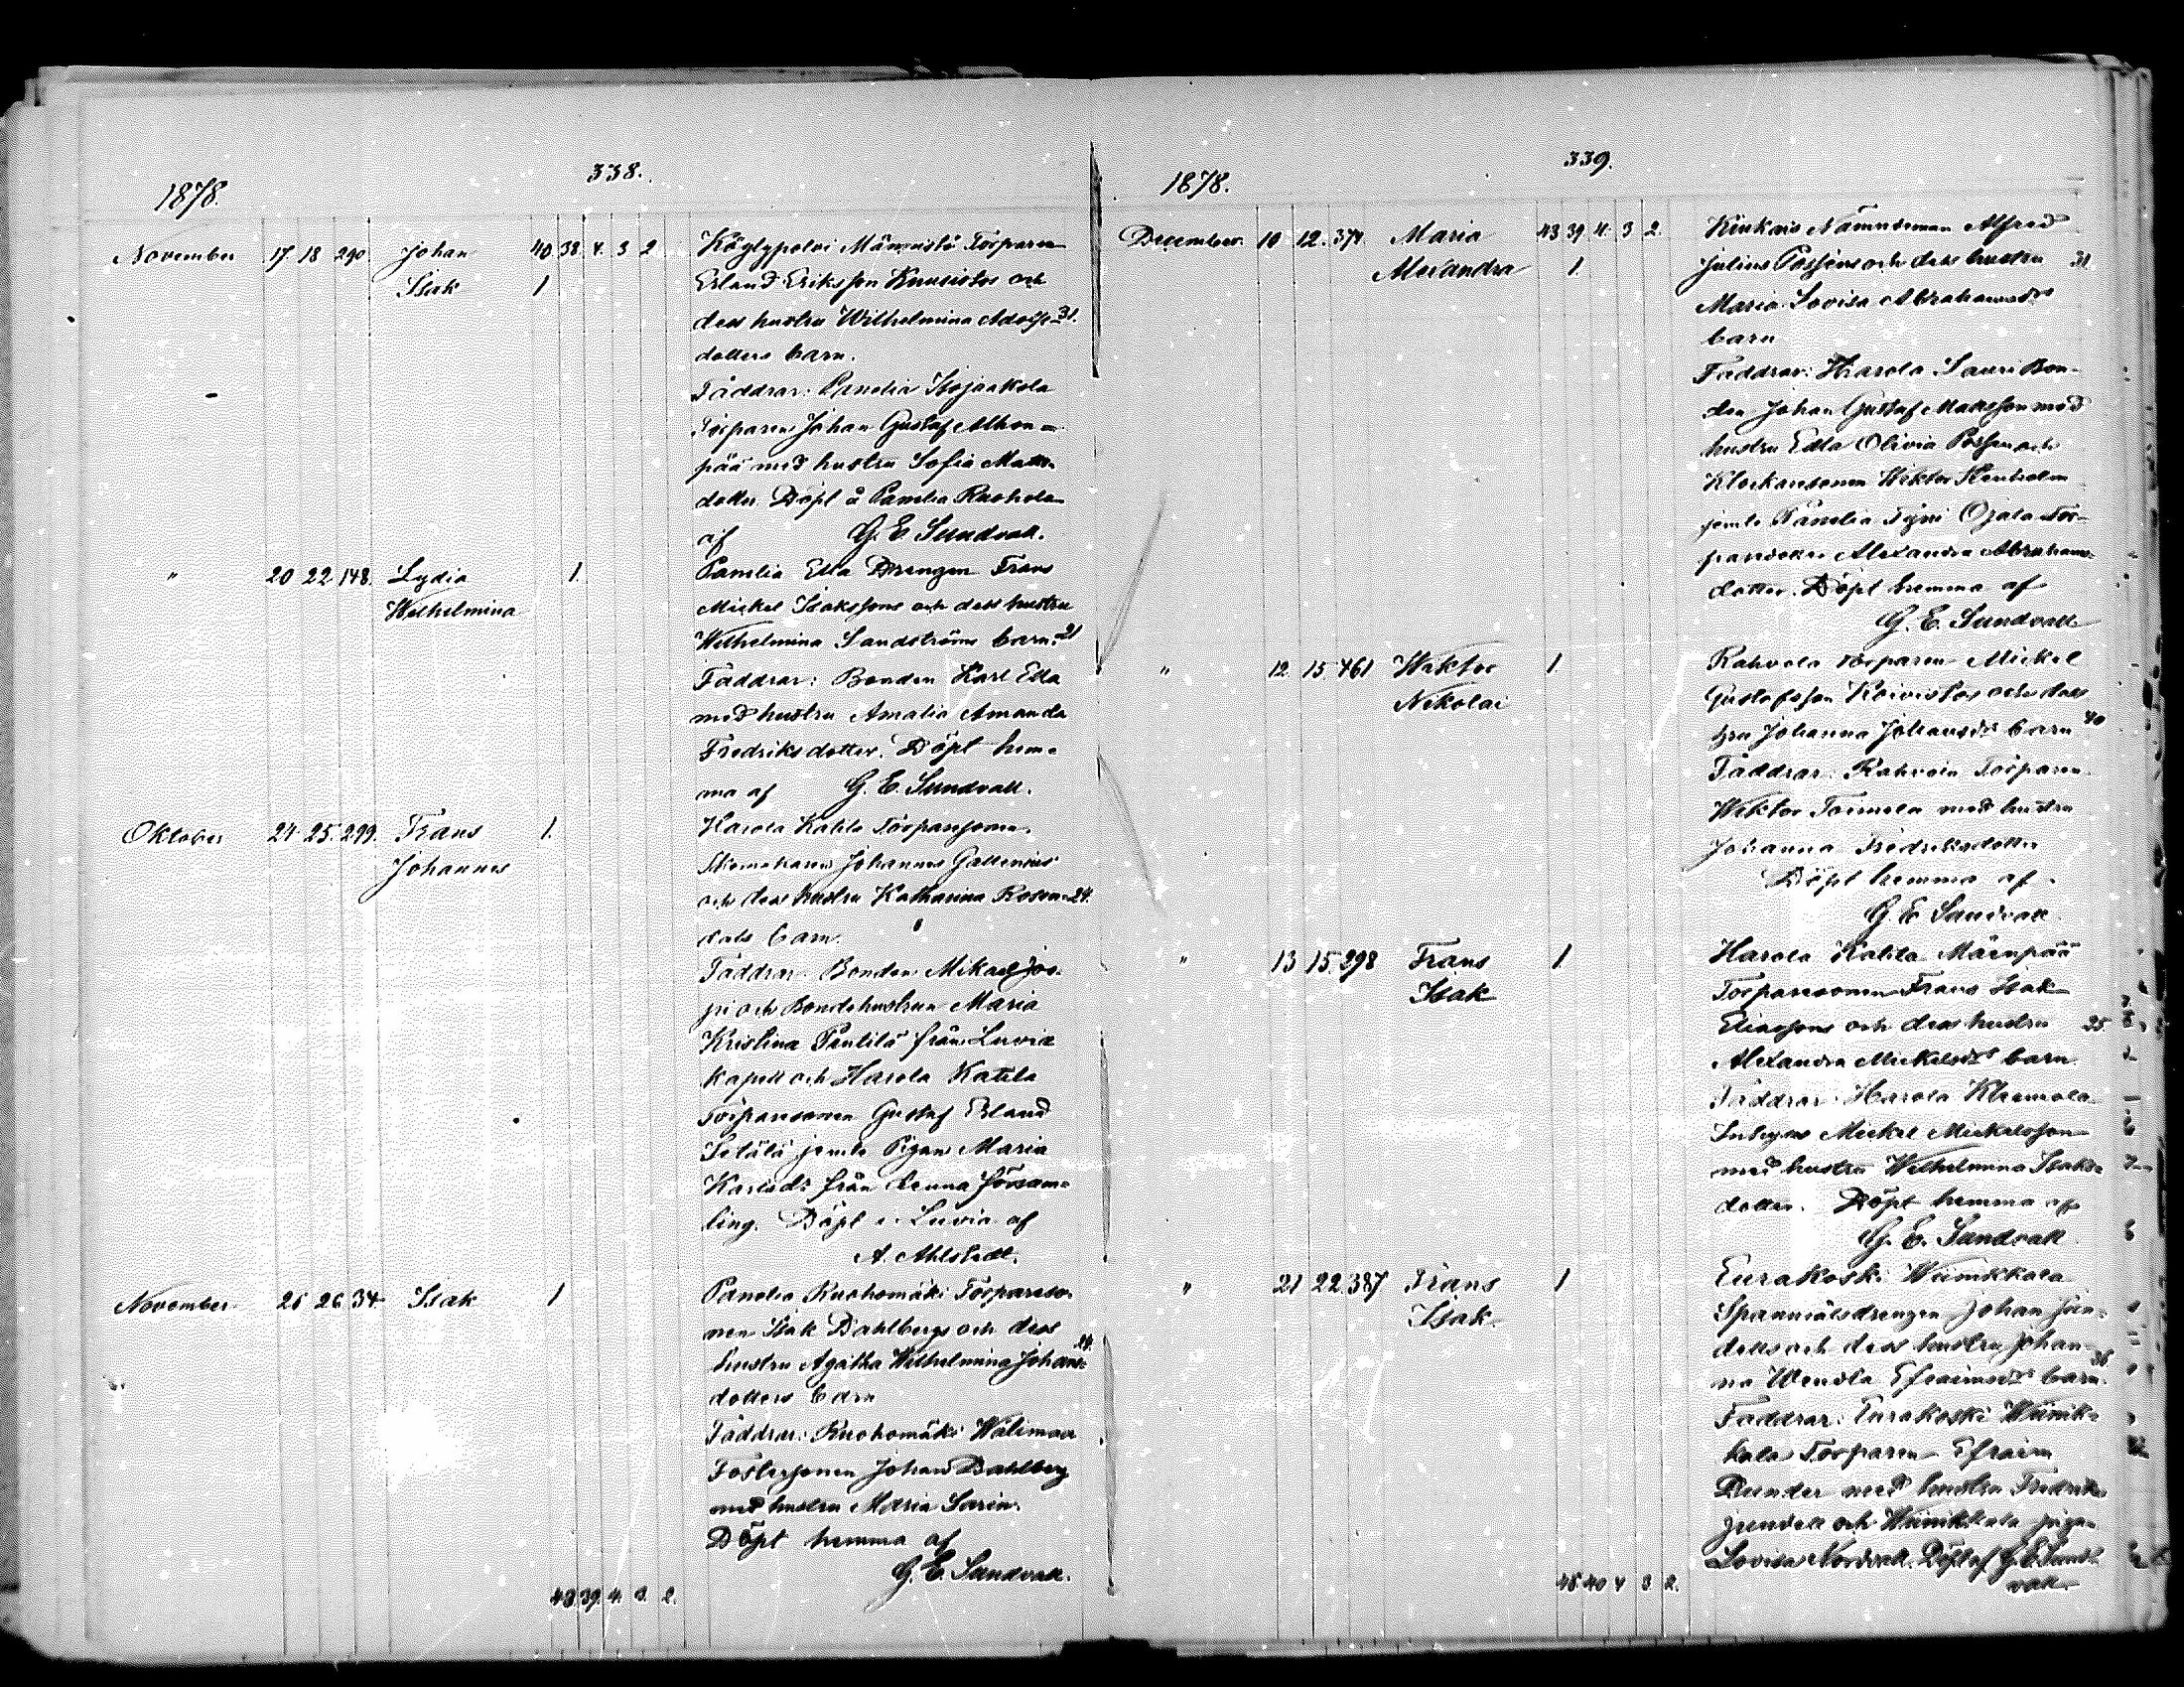 338.
1878.
November 17 18 290 Johan 40 38. 4. 3 2 Köylypolvi Torparen
Isak 1 Erland Eriksson Knuutilas och
dess hustru Wilhelmina Adolfs- 31.
dotters barn.
Faddrar: Panelia Isojaakola
Torparen Johan Gustaf Alhon=
pää med hustru Sofia Matts-
dotter. Döpt å Panelia Ruohola
af G. E. Sundvall.
" 20 22 148. Lydia 1. Panelia Ella Drengen Frans
Wilhelmina Mickel Isakssons och dess hustru
Wilhelmina Sandströms barn. 21
Faddrar: Bonden Karl Ella
med hustru Amalia Amanda
Fredriksdotter. Döpt hem-
ma af G. E. Sundvall.
Oktober 24 25. 299. Frans 1. Harola Katila Torparsonen,
Johannes Skomakaren Johannes Gallenius
och dess hustru Katharina Rosen- 24.
dals barn.
Faddrar: Bonden Mikael Jos-
pi och Bondehustrun Maria
Kristina Penlilä från Luvia
kapell och Harola Katila
Torparesonen Gustaf Erland
Setälä jemte Pigan Maria
Karlsdr från denna försam-
ling. Döpt i Luvia af
A. Ahlstedt.
November 26 26 34 Isak 1 Panelia Ruohomäki Torpareso-
nen Isak Dahlbergs och dess
hustru Agatha Wilhelmina Johans- 24.
dotters barn
Faddrar: Ruohomäki Wälimaa
Fostersonen Johan Dahlberg
med hustru Maria Sarin.
Döpt hemma af
G. E. Sundvall.
43 39. 4. 3. 2.
339.
1878.
December. 10 12. 374 Maria 43 39 4. 3 2. Kiukais Nämndeman Alfred
Alexandra 1. Julius Possens och dess hustru 31
Maria Lovisa Abrahamsdr
barn
Faddrar: Harola Sauri Bon-
den Johan Gustaf Matsson med
hustru Edla Olivia Possen och
Klockaresonen Wiktor
jemte Panelia Tyni Ojala Tor-
paredotter Alexandra Abrahams-
dotter. Döpt hemma af
G. E. Sundvall.
" 12. 15 461 Wiktor 1. Rahvola Torparen Mickel
Nikolai Gustafsson Koivistos och dess
hru Johanna Johansdrs barn 40
Faddrar: Rahvola Torparen
Wiktor Tormola med hustru
Johanna Fredriksdotter
Döpt hemma af
G. E. Sundvall
" 13 15. 298 Frans 1. Harola Katila Mäenpää
Isak Torparesonen Frans Isak
Eliassons och dess hustru 25.
Alexandra Mickelsdrs barn.
Faddrar: Harola Kleemola
Inhyses Mickel Mickelsson
med hustru Wilhelmina Isaks-
dotter. Döpt hemma af
G. E. Sundvall
" 21 22. 387 Frans 1 Eurakoski Wiinikkala
Isak. Spannmålsdrengen Johan
och dess hustru Johan-
na Wendla Efraimsdrs barn. 36
Faddrar: Eurakoski Wiinik-
kala Torparen Efraim
Dunder med hustru Fredrika
och Wiinikkala pigan
Lovisa Nordvall. Döpt af G. E. Sund-
vall.
48 40 4 3 2.